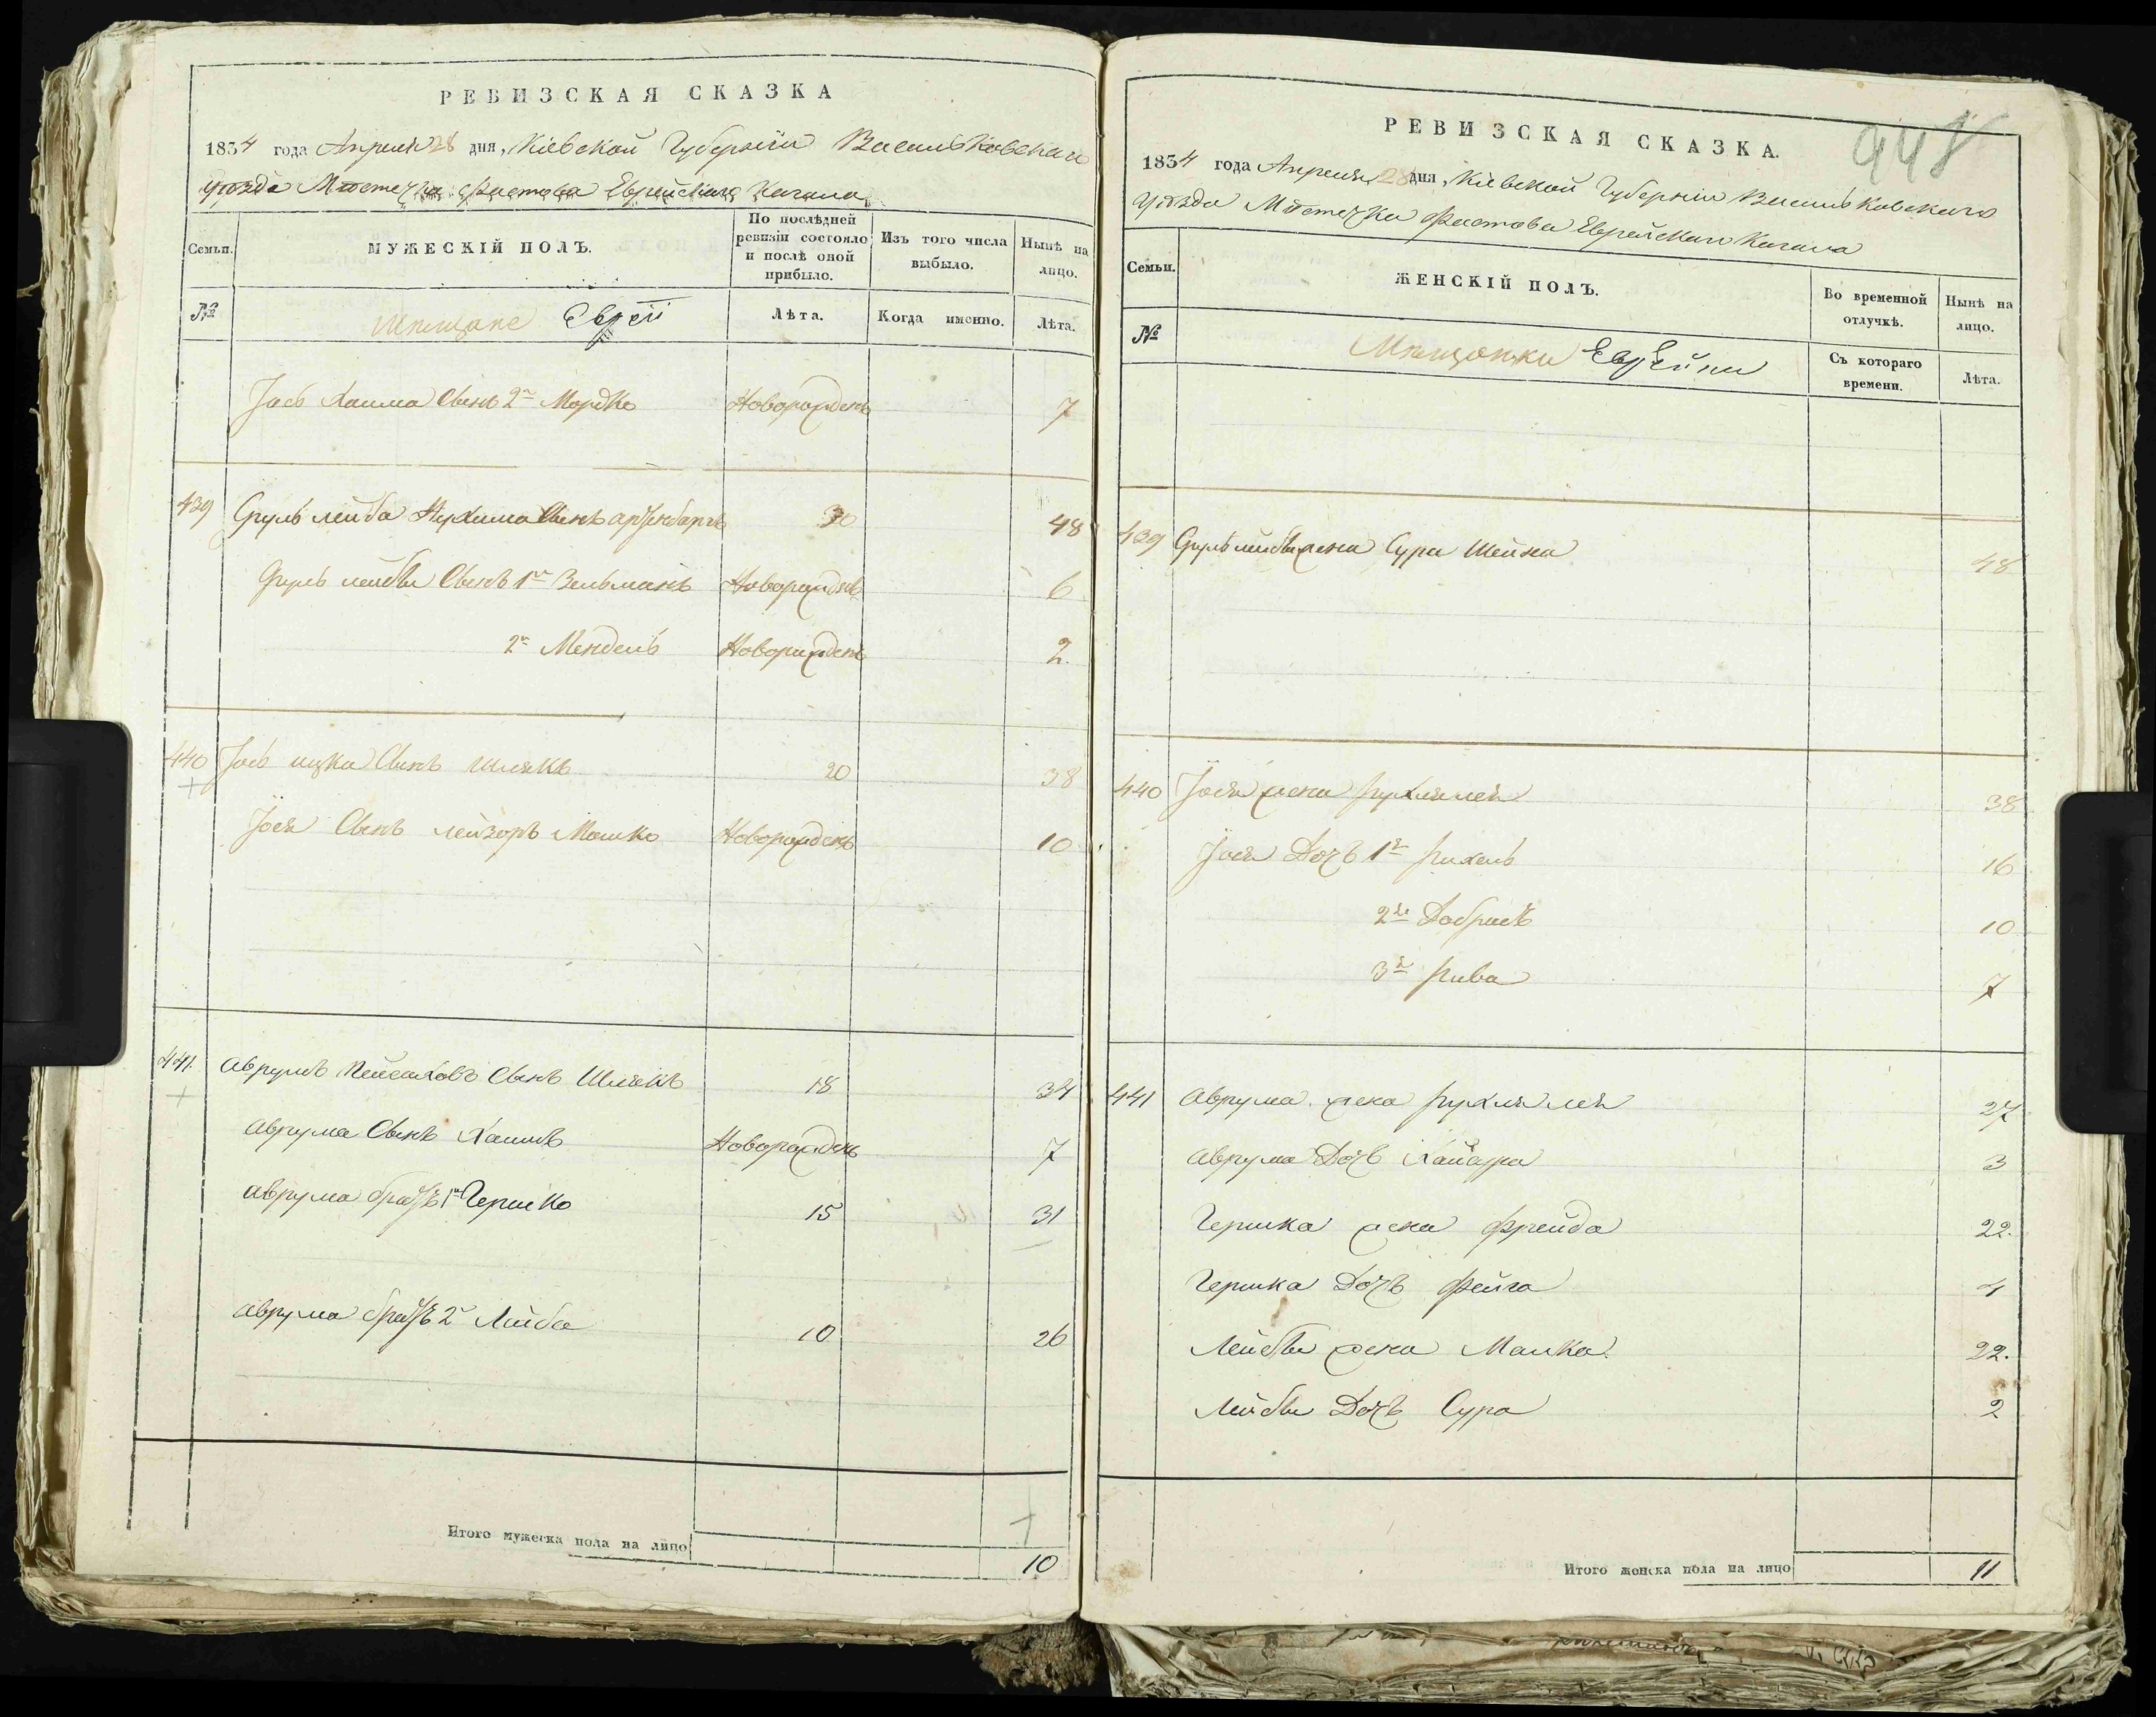 РЕВИЗСКАЯ СКАЗКА
1834 года Апреля 28 дня, Кіевской Губерніи Васильковскаго
уѣзда Мѣстечка Фастова Еврейскаго Кагала
Семьи.
МУЖЕСКІЙ ПОЛЪ.
По послѣдней ревизіи состояло и послѣ оной прибыло.
Изъ того числа выбыло.
Нынѣ на лицо.
№
Мѣщане Евреи
Лѣта.
Когда именно.
Лѣта.
Іось Хаима Сынъ 2й Мордко Новорожденъ 7
439 Сруль лейба Нухима Сынъ 30 48
Сруль лейбы Сынъ 1й Зельманъ Новорожденъ 6
2й Мендель Новорожденъ 2.
440 Іось ицка Сынъ Шлякъ 20 38
Іося Сынъ лейзоръ Мошко Новорожденъ 10
441. Аврумъ Пейсаховъ Сынъ Шлякъ 18 34
Аврума Сынъ Хаимъ Новорожденъ 7
Аврума братъ 1й Гершко 15 31
Аврума братъ 2й Лейба 10 26
Итого мужеска пола на лицо 10
948
РЕВИЗСКАЯ СКАЗКА.
1834 года Апреля 28 дня, Кіевской Губерніи Васильковскаго
уѣзда Мѣстечка Фастова Еврейскаго Кагала
Семьи.
ЖЕНСКІЙ ПОЛЪ.
Во временной отлучкѣ.
Нынѣ на лицо.
№
Мѣщанки Еврейки
Съ котораго времени.
Лѣта.
439 Сруль лейбы жена Сура Шейна 48
440 Іося жена рухля лея 38
Іося Дочь 1я рихель 16
2я 10
3я рива 7
441 Аврума жена рухля лея 27
Аврума Дочь 3
Гершка жена фрейда 22.
Гершка Дочь фейга 4
Лейбы жена Малка 22.
Лейбы Дочь Сура 2
Итого женска пола на лицо 11